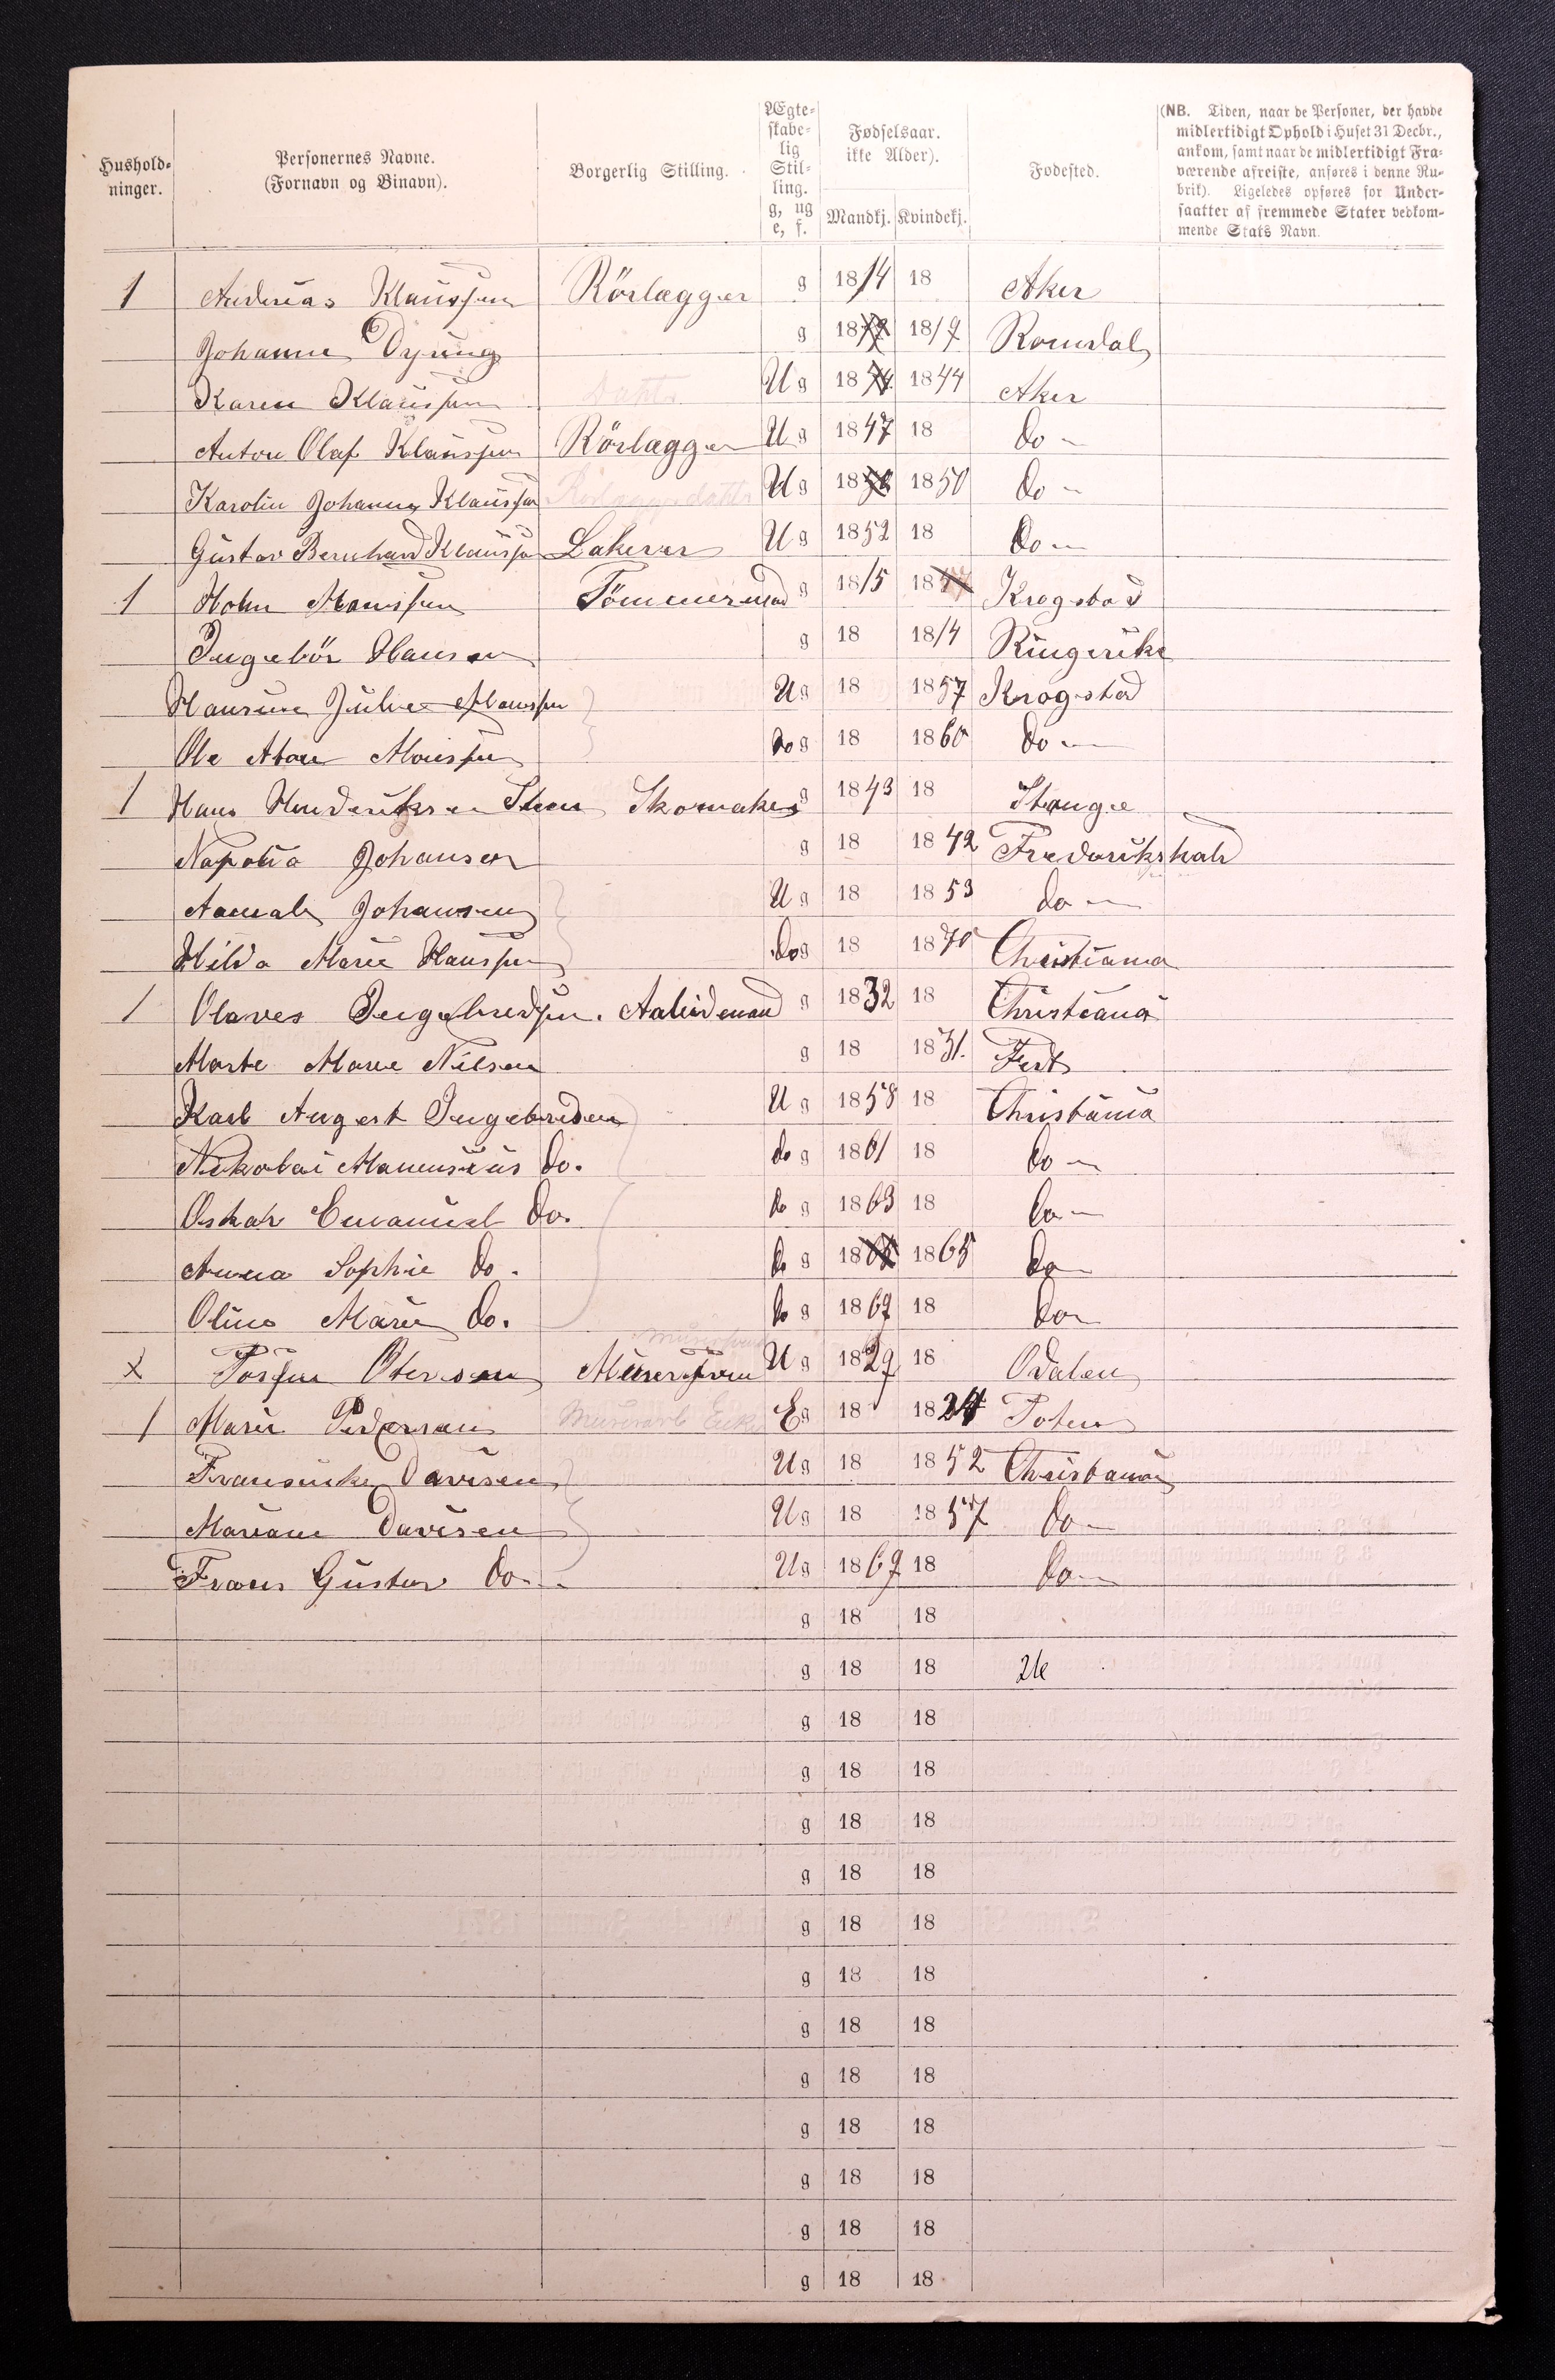 Hushold-
ninger.
Personernes Navne.
(Fornavn og Binavn).
Borgerlig Stilling.
Ægte-
skabe-
lig
Stil-
ling.
g, ug
e, f.
Fødselsaar.
ikke Alder).
Mandkj. Kvindekj.
Fødested.
(NB. Tiden, naar de Personer, der havde
midlertidigt Ophold i Huset 31 Decbr.,
ankom, samt naar de midlertidigt Fra-
værende afreiste, anføres i denne Ru-
brik). Ligeledes opføres for Under-
saatter af fremmede Stater vedkom-
mende Stats Navn.
1 Andreas Klaussen Rörlægger g 1814 18 Aker
Johanne Dyring g 18 1819 Romsdal
Karen Klaussen Datter U g 18 1844 Aker
Anton Olaf Klaussen Rörlægger U g 1847 18 do
Karolin Johanna Klaussen Rörlæggerdatter U g 18 1850 do
Gustav Bernhard Klaussen Lakerer U g 1852 18 do
1 Tömmermand g 1815 18 Krogstad
Ingebör Hansen g 18 1814 Ringerike
Hansine Julie U g 18 1857 Krogstad
Ole do g 18 1860 do
1 Hans Hendriksen Skomaker g 1843 18 Stange
Johansen g 18 1842 Frederikshald
Johansen U g 18 1853 do
Hilda Marie Hanssen do g 18 1870 Christiania
1 Olaves Ingebredsen. Arbeidsmand g 1832 18 Christiania
Marte Marie Nilsen g 18 1831. Fet
Karl August Ingebredsen U g 1858 18 Christiania
Nikolai do. do g 1861 18 do
Oskar Emanuel do. do g 1863 18 do
Anna Sophie do. do g 18 1865 do
Oline Marie do. do g 1867 18 do
x U g 1829 18 Odalen
1 Marie Pedersen Murerarb Enke E g 18 1824 Toten
Fransiske Davisen U g 18 1852 Christiania
Mariane Davisen U g 18 1857 do
Frans Gustav do. U g 1869 18 do
g 18 18
g 18 18 26
g 18 18
g 18 18
g 18 18
g 18 18
g 18 18
g 18 18
g 18 18
g 18 18
g 18 18
g 18 18
g 18 18
g 18 18